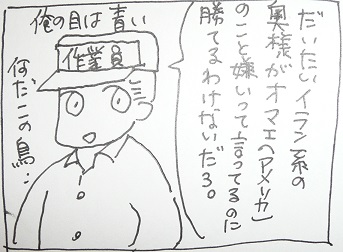 だいたいイラン系の
奥様がオマエ〈アメリカ〉
のこと嫌いって言ってるのに
勝てるわけないだろ。
俺の目は青い
作業員
何だこの鳥…